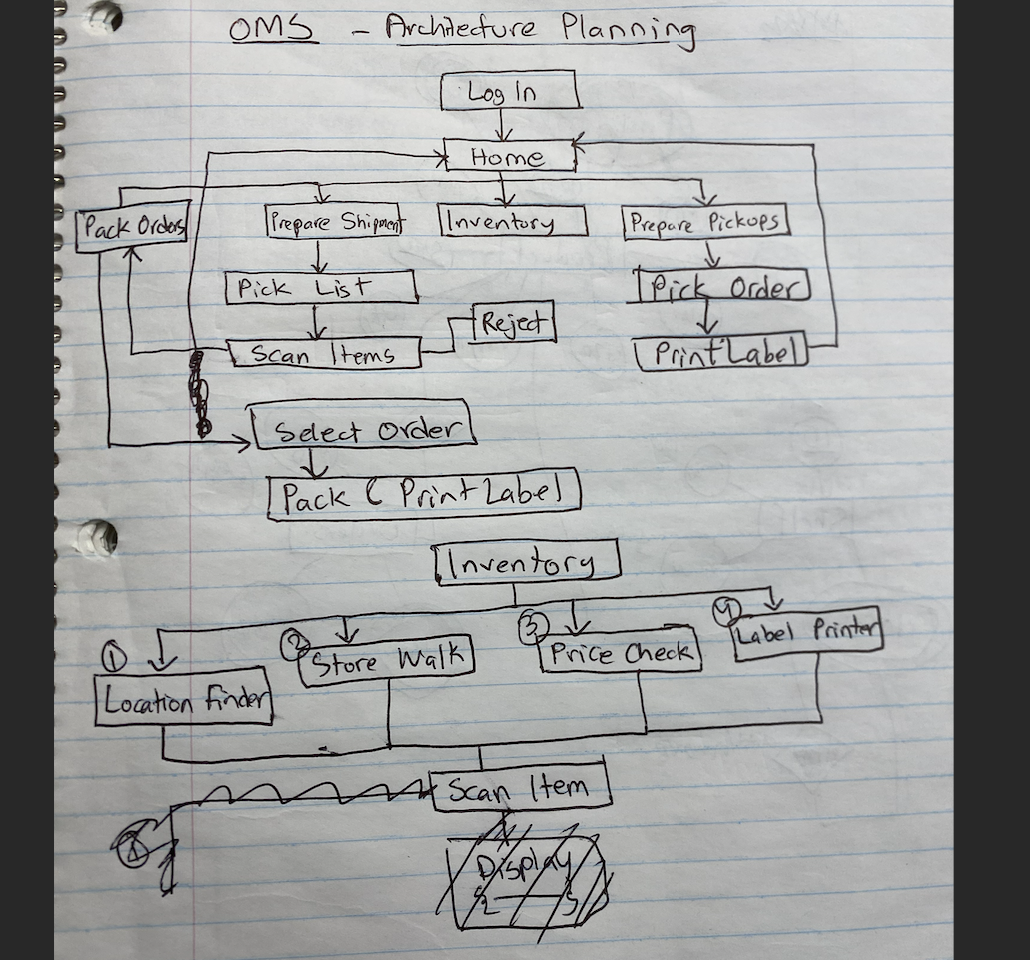 OMS - Architecture Planning
Log In
Home
Pack Orders
Prepare Shipment
Inventory
Prepare Pickups
Pick List
Pick Order
Reject
Scan Items
Print Label
Select Order
Pack & Print Label
Inventory
① Location Finder
② Store Walk
③ Price Check
④ Label Printer
Scan Item
Display